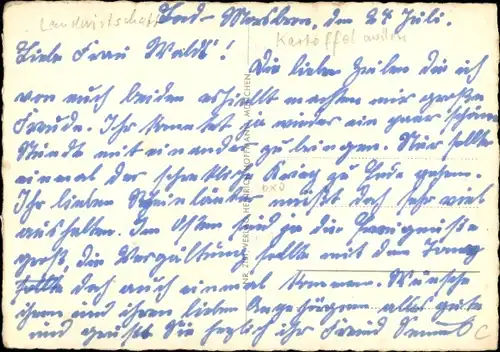 Landwirtschaft
Bad-Mersburg, den 24 Juli.
Kartoffel
Liebe Frau Waldt!
Die lieben Zeilen die ich
von euch beiden erhielt machten mir große
Freude. Ihr konntet ja wieder ein paar schöne
Stunden mit einander zu bringen. Nur sollte
einmal der schreckliche Krieg zu Ende gehen.
Ihr lieben Rheinländer müßt doch sehr viel
aushalten. Im Osten sind ja die Ereignisse
groß, die Vergeltung sollte mit dem
sollte doch auch einmal kommen. Wünsche
ihnen und ihren lieben Angehörigen alles gute
und grüßt Sie herzlich ihr Freund
NR. 250 VERLAG HEINRICH HOFFMANN, MÜNCHEN